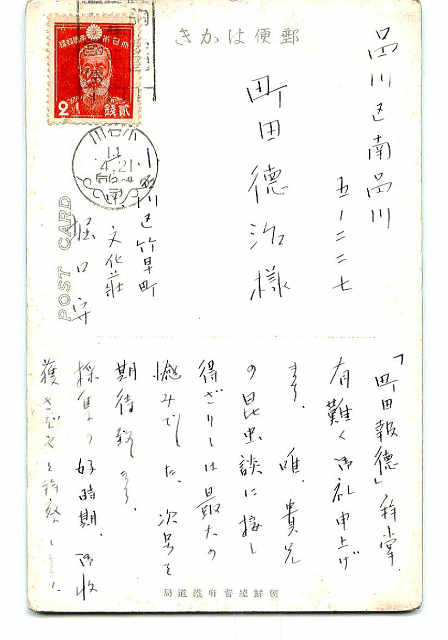 郵便はかき
大日本帝国郵便
2
貳
錢
小石川
13
4.21
品川区南品川
五ノ二二七
町田德治様
小石川区竹早町
文化荘
堀口守
POST CARD
「町田報德」拜掌、
有難く御礼申上げ
ます、唯、貴兄
の昆虫談に接し
得ざりしは最大の
憾みでした、次号を
期待致します、
採集の好時期、御収
獲
朝鮮總督府鐵道局